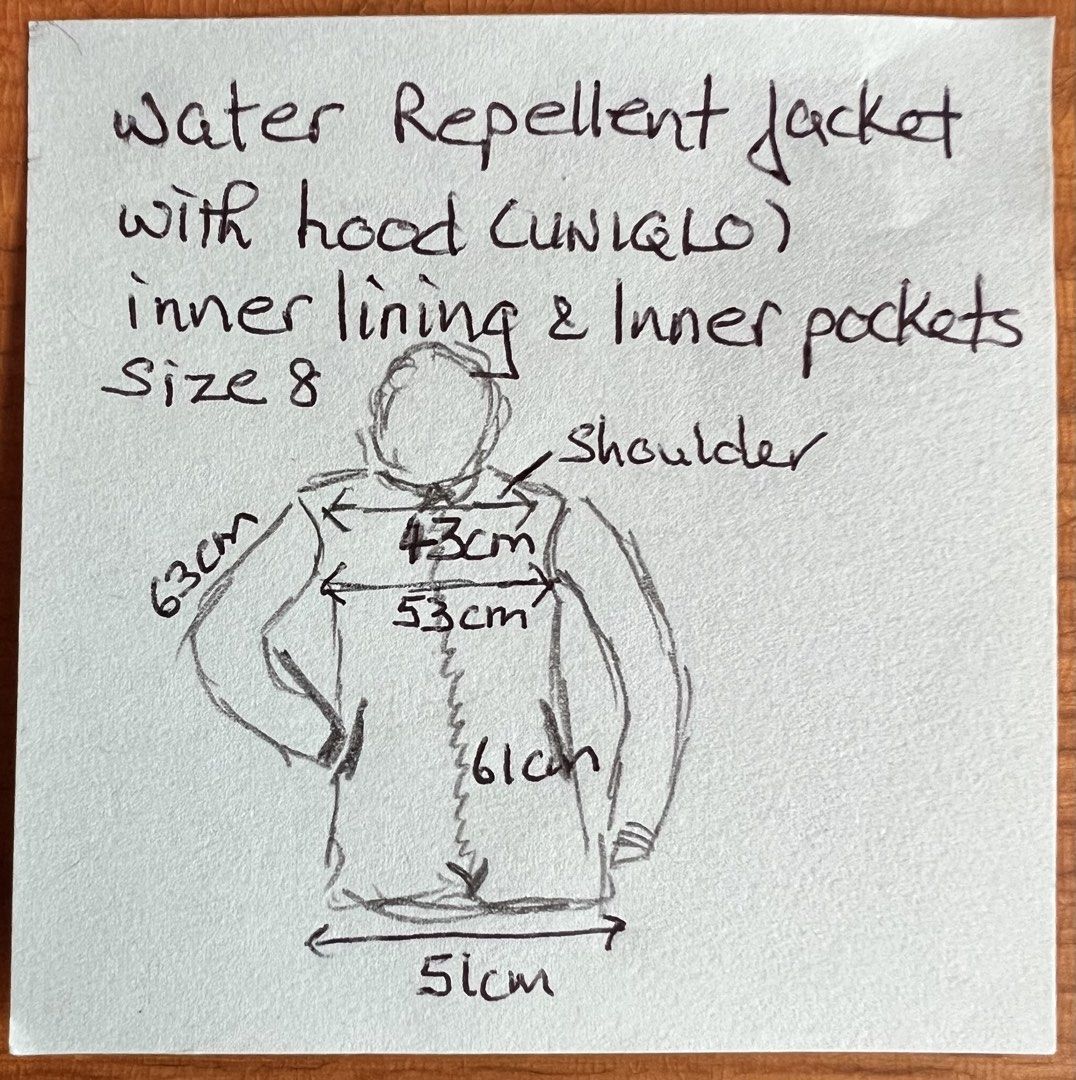 Water Repellent Jacket
with hood (UNIQLO)
inner lining & Inner pockets
Size 8
Shoulder
43cm
63cm
53cm
61cm
51cm